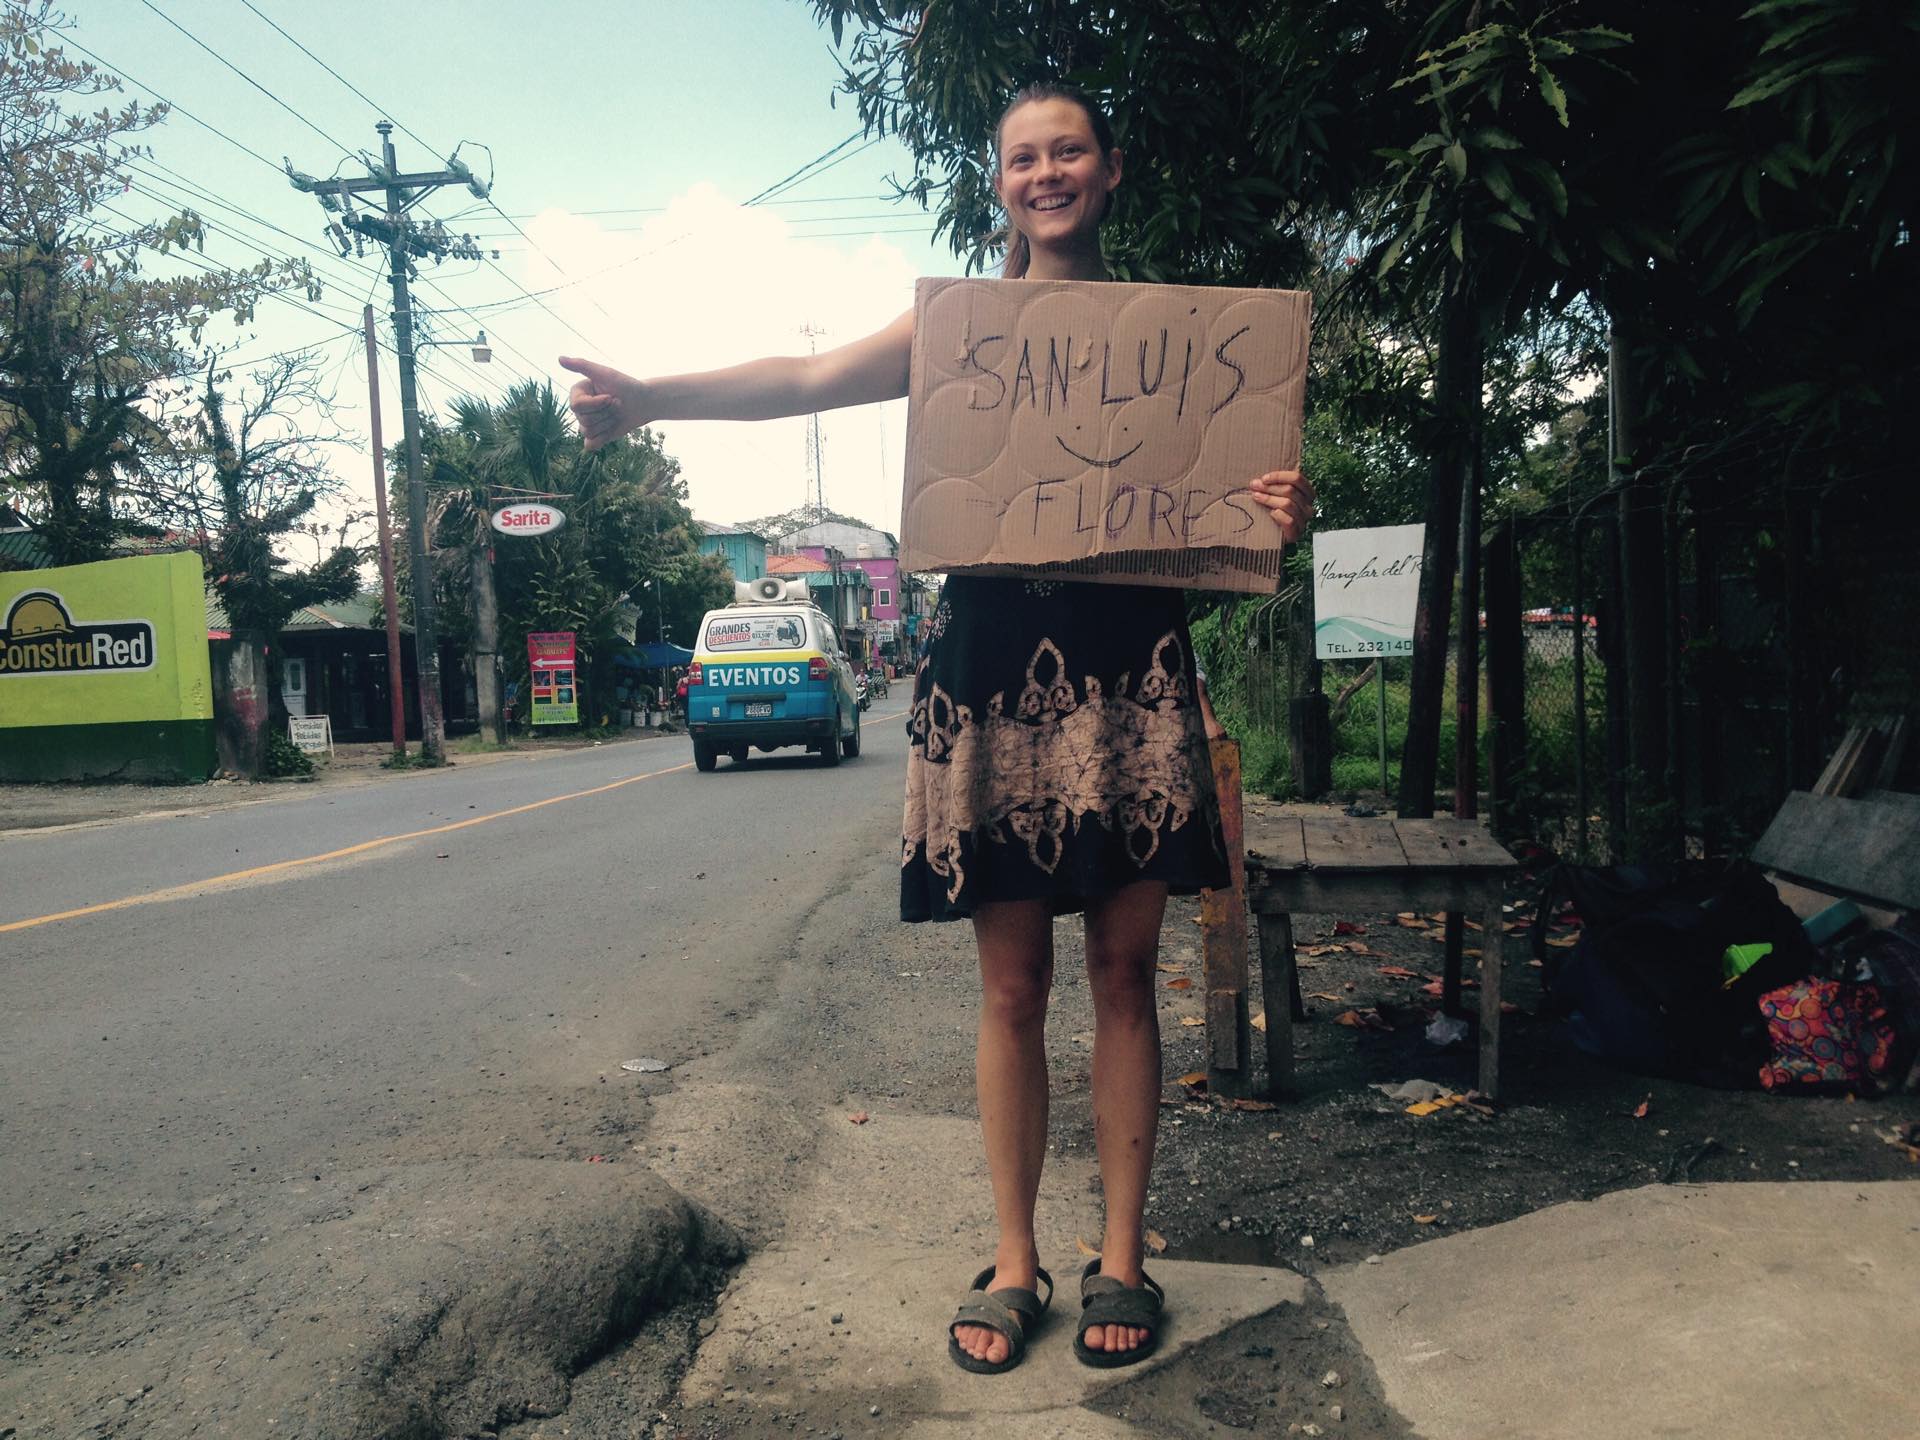 SAN LUiS
FLORES
Sarita
ConstruRed
GRANDES
DESCUENTOS
EVENTOS
Manglar del R
TEL. 232140
Bebidas